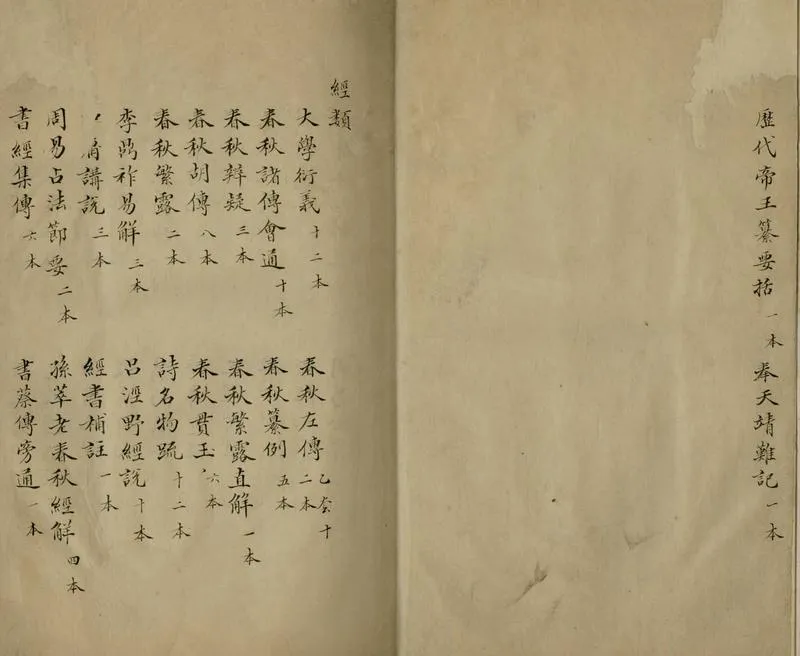 歷代帝王纂要括 一本 奉天靖難記 一本
經類
大學衍義 十二本 春秋左傳 乙套十二本
春秋諸傳會通 十本 春秋纂例 五本
春秋辯疑 三本 春秋繁露直解 一本
春秋胡傳 八本 春秋貫玉 六本
春秋繁露 二本 詩名物疏 十二本
李鼎祚易解 三本 呂涇野經說 十本
講說 三本 經書補註 一本
周易占法節要 二本 孫萃老春秋經解 四本
書經集傳 六本 書蔡傳旁通 一本